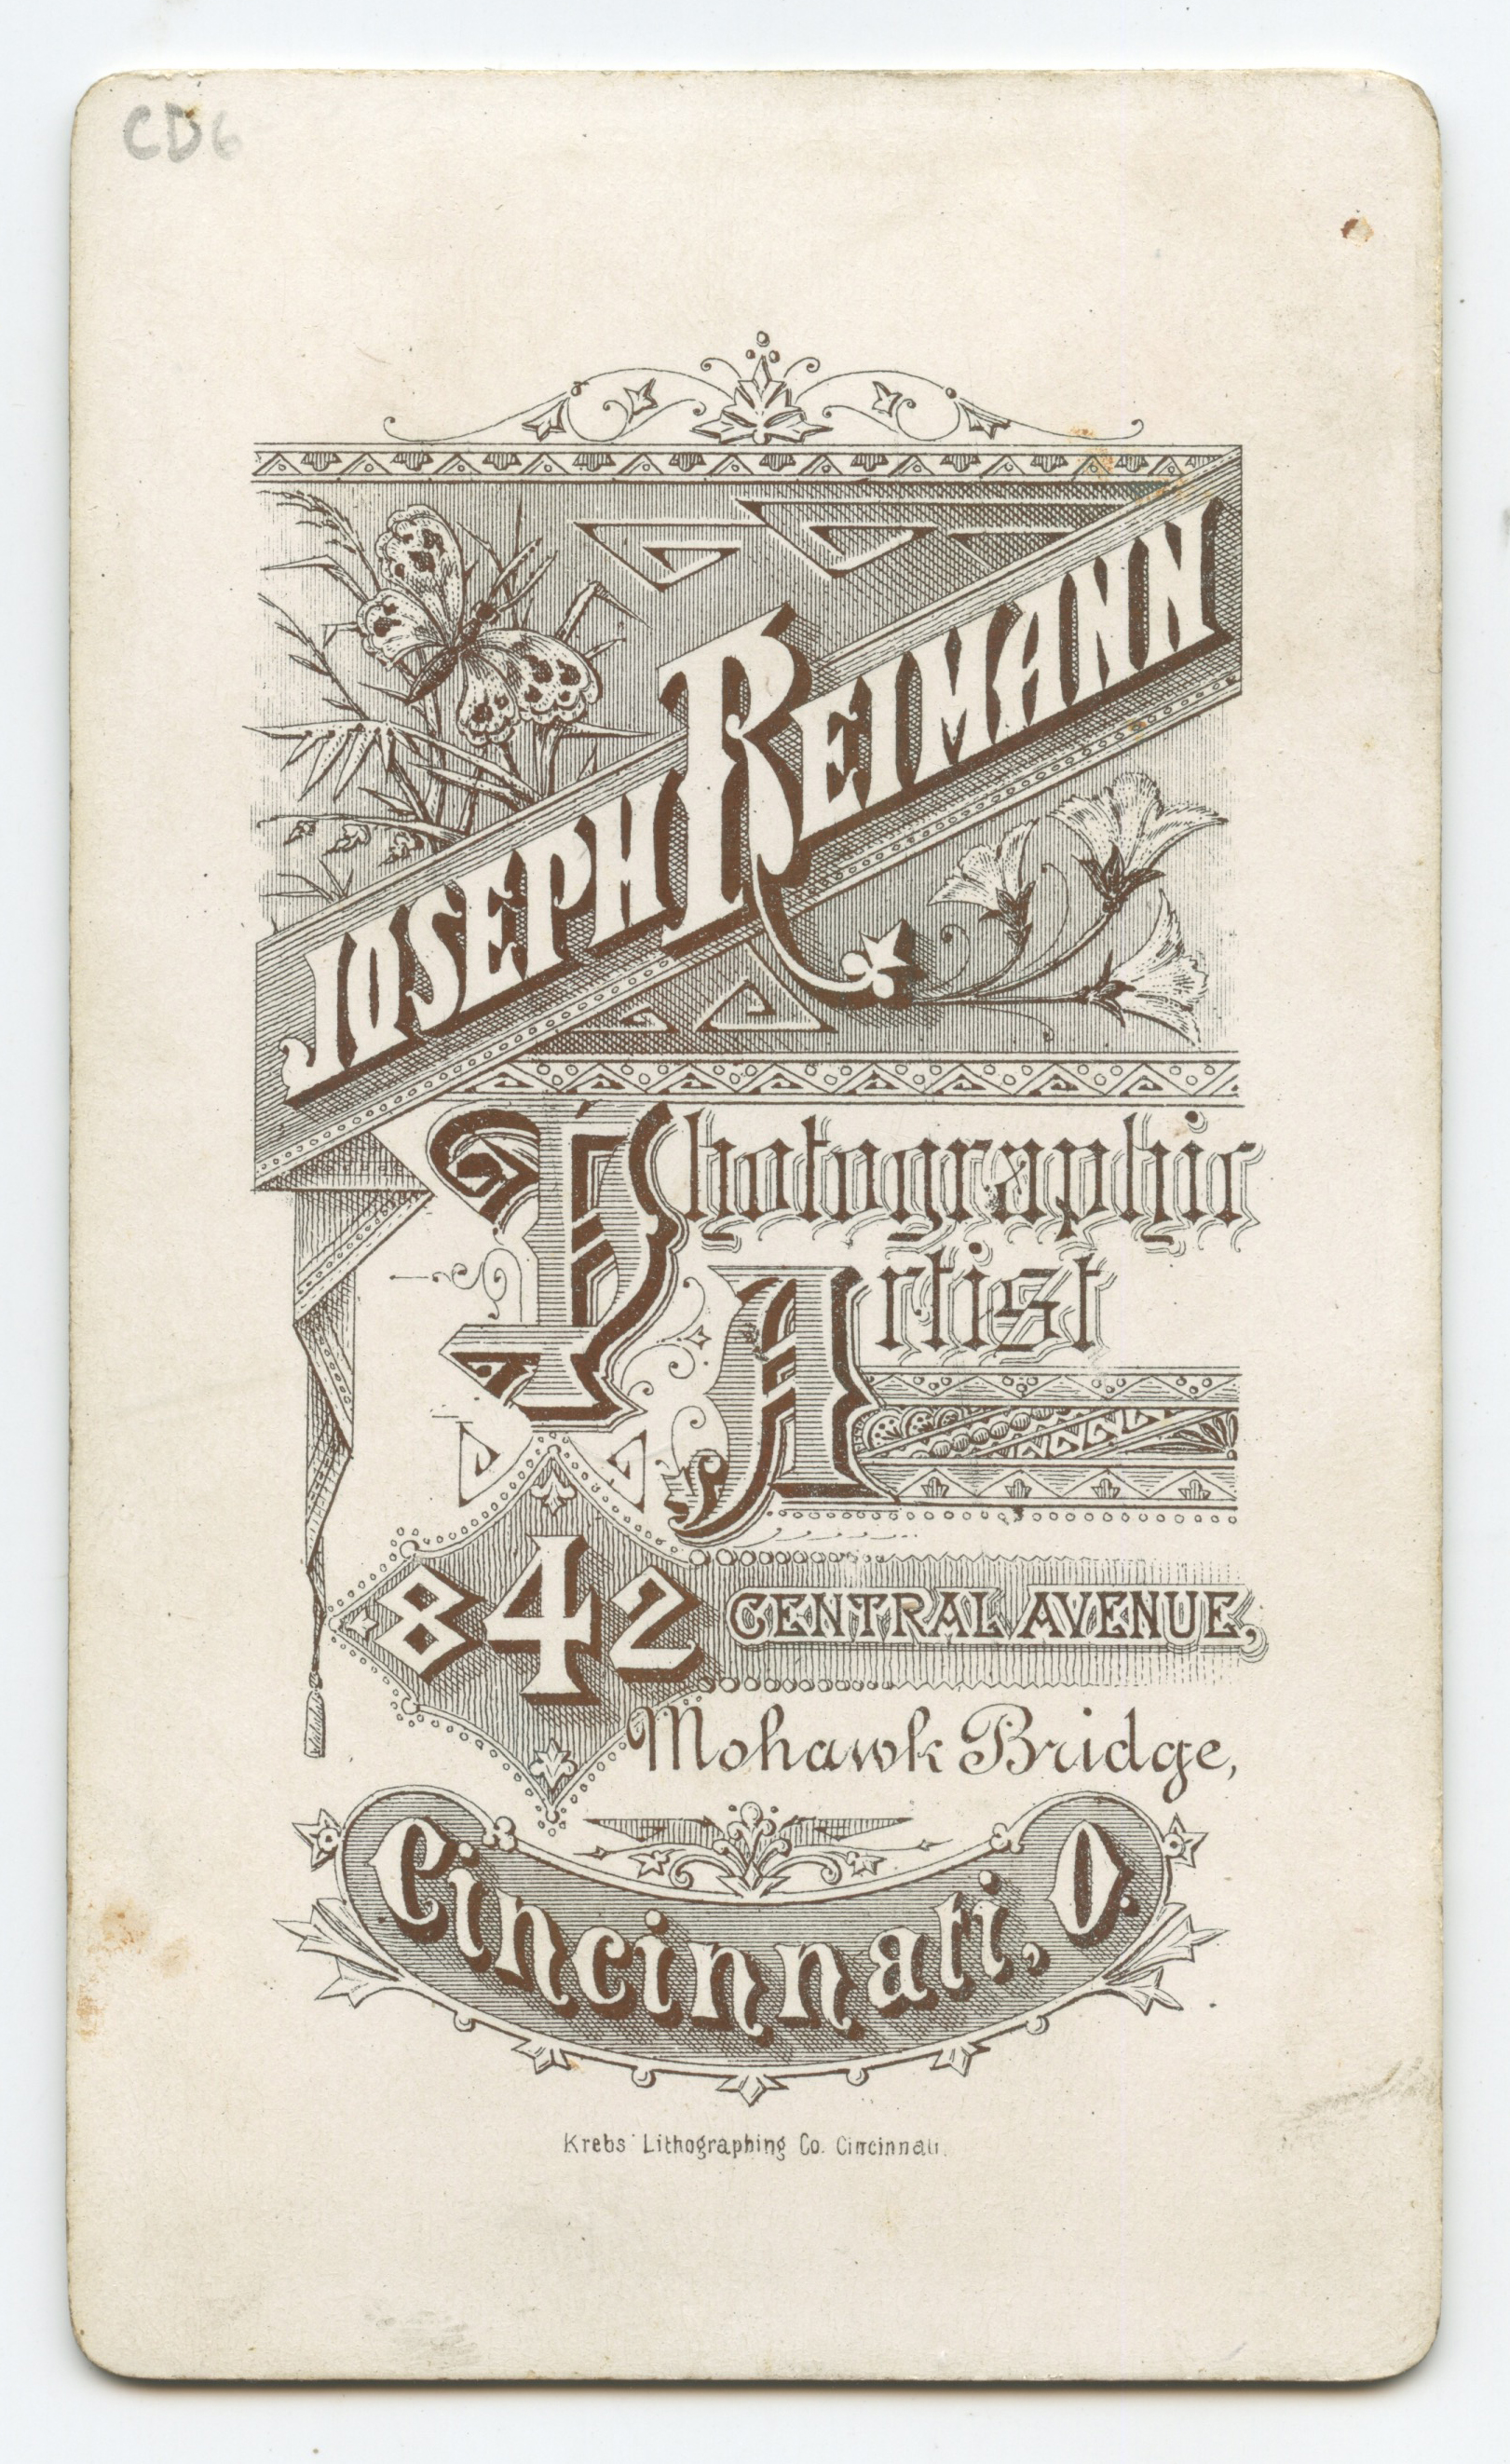 CD6
JOSEPH REIMANN
Photographic
Artist
842 CENTRAL AVENUE,
Mohawk Bridge,
Cincinnati, O.
Krebs Lithographing Co. Cincinnati.